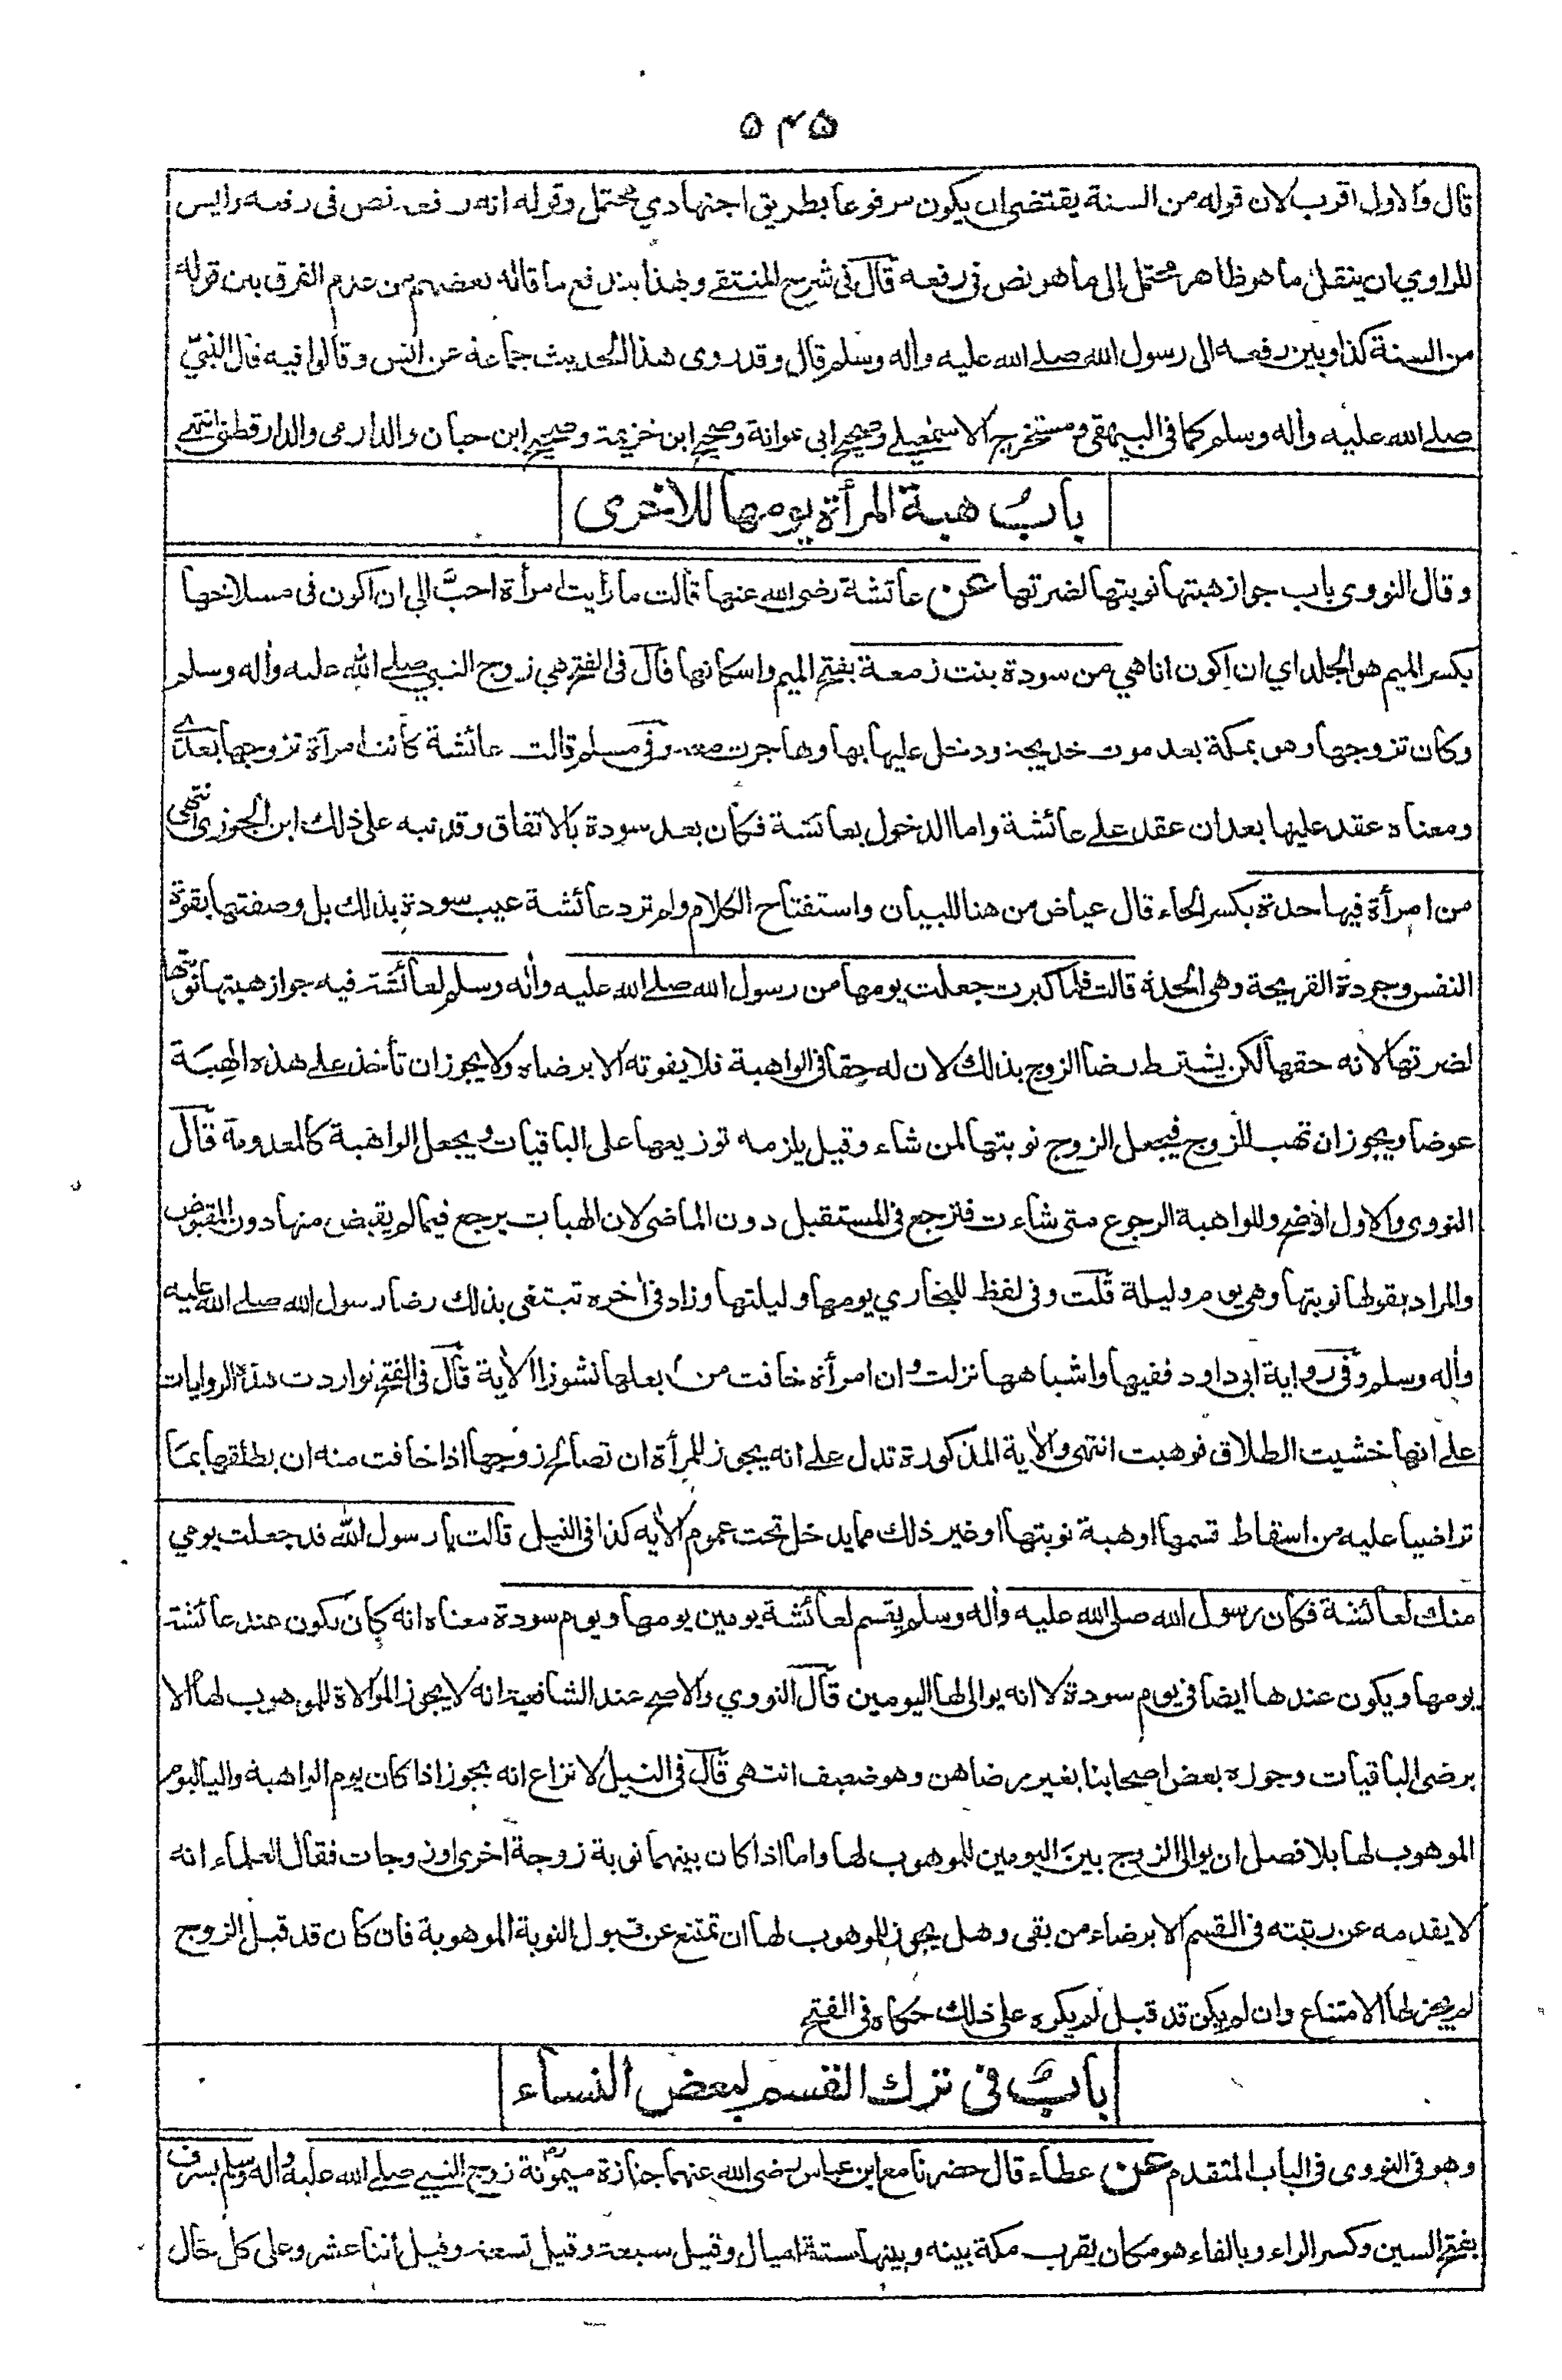 ٥٤٥
قال والاول اقرب لان قوله من السنة يقتضى ان يكون مرفوعا بطريق اجتهادي محتمل وقوله انه رفعه نص فى رفعه وليس
للراوي ان ينقل ما هو ظاهر محتمل الى ما هو نص فى رفعه قال فى شرح المنتقى وبهذا يندفع ما قاله بعضهم من عدم الفرق بين قوله
من السنة كذا وبين رفعه الى رسول الله صلى الله عليه واله وسلم قال وقد روى هذا الحديث جماعة عن انس وقالوا فيه قال النبيّ
صلى الله عليه واله وسلم كما فى البيهقى ومستخرج الاسمعيلى وصحيح ابى عوانة وصحيح ابن خزيمة وصحيح ابن حبان والدارمى والدارقطنى انتهى
بابُ هبة المرأة يومها للاخرى
وقال النووى باب جواز هبتها نوبتها لضرتها عن عائشة رضى الله عنها قالت ما رأيت امرأة احبَّ الي ان اكون فى مسلاخها
بكسر الميم هو الجلد اي ان اكون انا هي من سودة بنت زمعة بفتح الميم واسكانها قال فى الفتح هي زوج النبي صلى الله عليه واله وسلم
وكان تزوجها وهو بمكة بعد موت خديجة ودخل عليها بها وهاجرت معه وفى مسلم قالت عائشة كانت امرأة تزوجها بعدى
ومعناه عقد عليها بعد ان عقد على عائشة واما الدخول بعائشة فكان بعد سودة بالاتفاق وقد نبه على ذلك ابن الجوزى انتهى
من امرأة فيها حدة بكسر الحاء قال عياض من هنا للبيان واستفتاح الكلام ولم ترد عائشة عيب سودة بذلك بل وصفتها بقوة
النفس وجودة القريحة وهى الحدة قالت فلما كبرت جعلت يومها من رسول الله صلى الله عليه واله وسلم لعائشة فيه جواز هبتها نوبتها
لضرتها لانه حقها لكن يشترط رضا الزوج بذلك لان له حقا فى الواهبة فلا يفوته الا برضاه ولا يجوز ان تأخذ على هذه الهِبَة
عوضا ويجوز ان تهب للزوج فيجعل الزوج نوبتها لمن شاء وقيل يلزمه توزيعها على الباقيات ويجعل الواهبة كالمعدومة قال
النووى والاول اوضح وللواهبة الرجوع متى شاءت فترجع فى المستقبل دون الماضى لان الهبات يرجع فيما لم يقبض منها دون المقبوض
والمراد بقولها نوبتها وهى يوم وليلة قلت وفى لفظ للبخاري يومها وليلتها وزاد فى اخره تبتغى بذلك رضا رسول الله صلى الله عليه
واله وسلم وفى رواية ابى داود ففيها واشباهها نزلت وان امرأة خافت من بعلها نشوزا الاية قال فى الفتح تواردت هذه الروايات
على انها خشيت الطلاق فوهبت انتهى والاية المذكورة تدل على انه يجوز للمرأة ان تصالح زوجها اذا خافت منه ان يطلقها بما
تراضيا عليه من اسقاط قسمها او هبة نوبتها او غير ذلك مما يدخل تحت عموم الاية كذا فى النيل قالت يا رسول الله قد جعلت يومي
منك لعائشة فكان رسول الله صلى الله عليه واله وسلم يقسم لعائشة يومين يومها ويوم سودة معناه انه كان يكون عند عائشة
يومها ويكون عندها ايضا فى يوم سودة لا انه يوالى لها اليومين قال النووي والاصح عند الشافعية انه لا يجوز الموالاة للموهوب لها الا
برضى الباقيات وجوزه بعض اصحابنا بغير رضاهن وهو ضعيف انتهى قال فى النيل لا نزاع انه يجوز اذا كان يوم الواهبة واليا ليوم
الموهوب لها بلا فصل ان يوالى الزوج بين اليومين للموهوب لها واما اذا كان بينهما نوبة زوجة اخرى او زوجات فقال العلماء انه
لا يقدمه عن رتبته فى القسم الا برضاء من بقى وهل يجوز للموهوب لها ان تمتنع عن قبول النوبة الموهوبة فان كان قد قبل الزوج
لم يجز لها الامتناع وان لم يكن قد قبل لم يكره على ذلك حكاه فى الفتح
بابٌ فى ترك القسم لبعض النساء
وهو فى النووى فى الباب المتقدم عن عطاء قال حضرنا مع ابن عباس رضى الله عنهما جنازة ميمونة زوج النبي صلى الله عليه واله وسلم بسرف
بفتح السين وكسر الراء وبالفاء هو مكان بقرب مكة بينه وبينها ستة اميال وقيل سبعة وقيل تسعة وقيل اثنا عشر وعلى كل حال